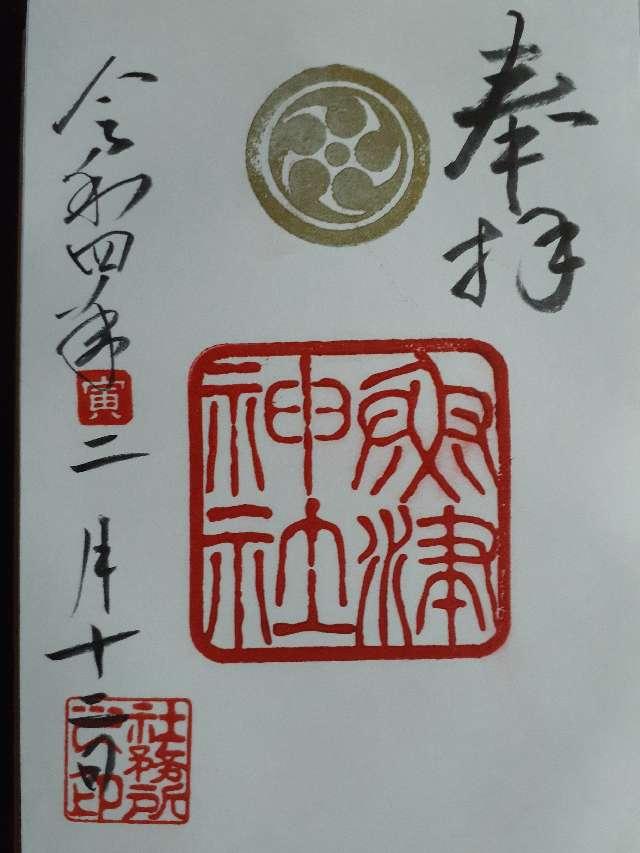 奉拝
津
神社
令和四年寅二月十二日
社務所
之印